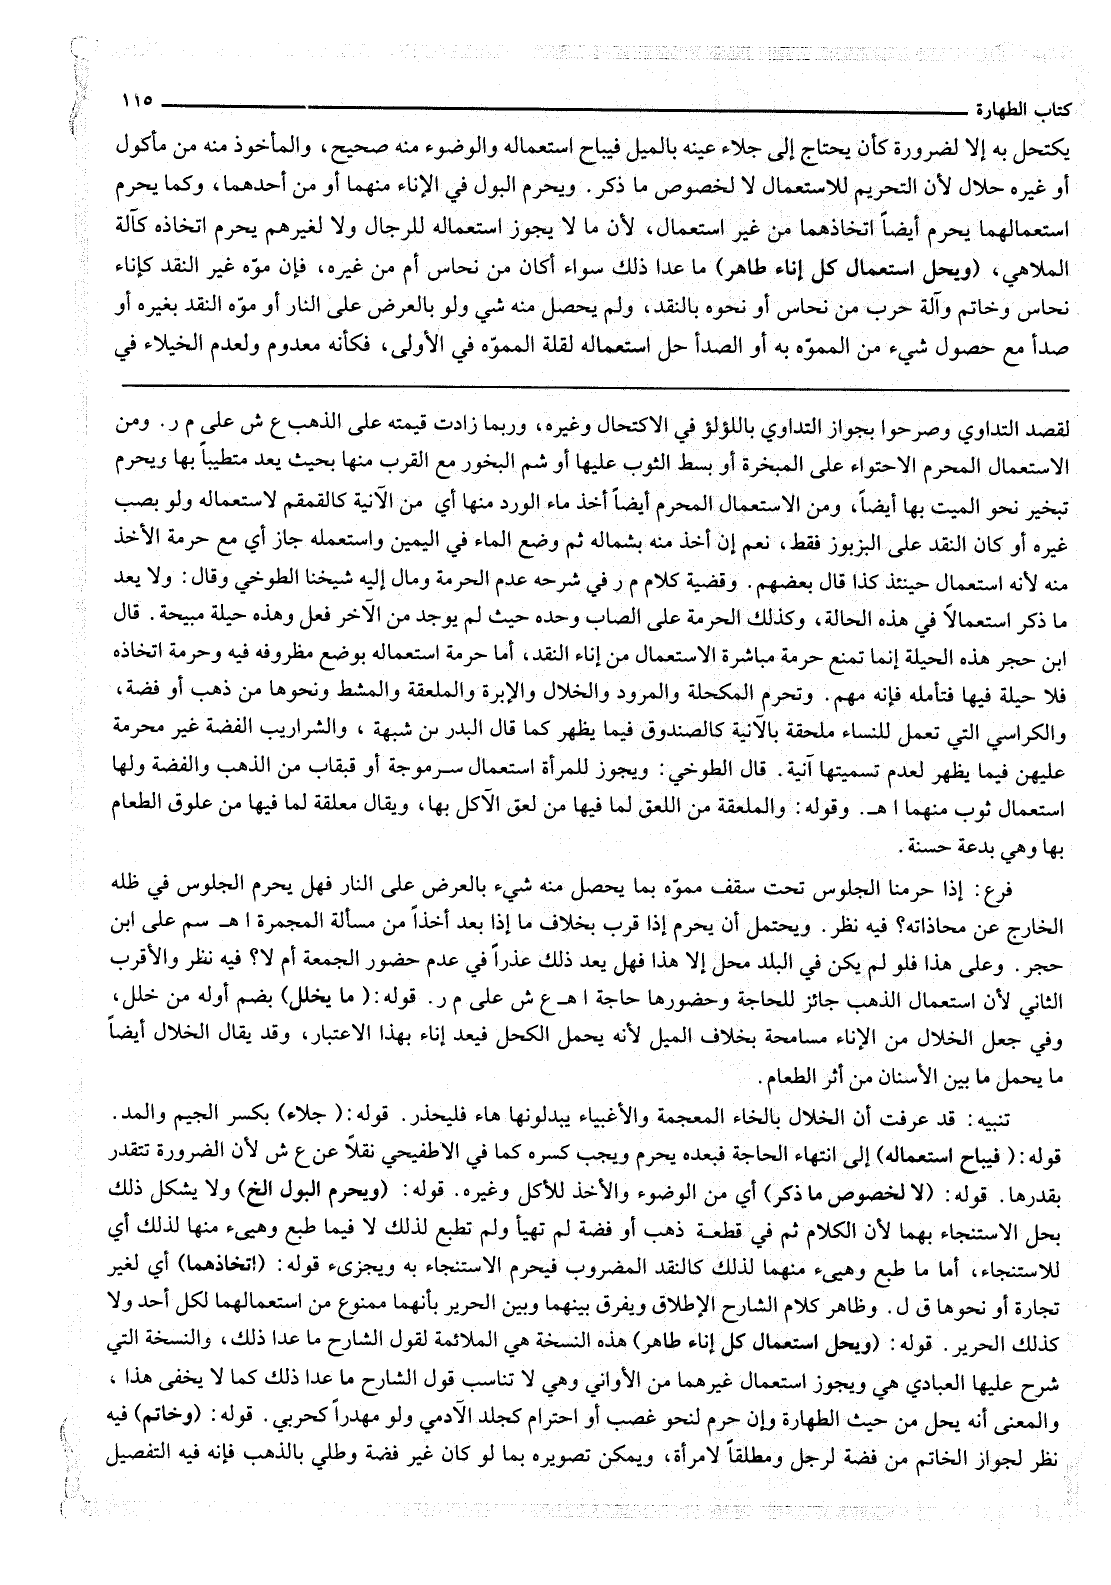 كتاب الطهارة ١١٥
يكتحل به إلا لضرورة كأن يحتاج إلى جلاء عينه بالميل فيباح استعماله والوضوء منه صحيح، والمأخوذ منه من مأكول
أو غيره حلال لأن التحريم للاستعمال لا لخصوص ما ذكر. ويحرم البول في الإناء منهما أو من أحدهما، وكما يحرم
استعمالهما يحرم أيضاً اتخاذهما من غير استعمال، لأن ما لا يجوز استعماله للرجال ولا لغيرهم يحرم اتخاذه كآلة
الملاهي، (ويحل استعمال كل إناء طاهر) ما عدا ذلك سواء أكان من نحاس أم من غيره، فإن موّه غير النقد كإناء
نحاس وخاتم وآلة حرب من نحاس أو نحوه بالنقد، ولم يحصل منه شي ولو بالعرض على النار أو موّه النقد بغيره أو
صدأ مع حصول شيء من المموّه به أو الصدأ حل استعماله لقلة المموّه في الأولى، فكأنه معدوم ولعدم الخيلاء في
لقصد التداوي وصرحوا بجواز التداوي باللؤلؤ في الاكتحال وغيره، وربما زادت قيمته على الذهب ع ش على م ر. ومن
الاستعمال المحرم الاحتواء على المبخرة أو بسط الثوب عليها أو شم البخور مع القرب منها بحيث يعد متطيباً بها ويحرم
تبخير نحو الميت بها أيضاً، ومن الاستعمال المحرم أيضاً أخذ ماء الورد منها أي من الآنية كالقمقم لاستعماله ولو بصب
غيره أو كان النقد على البزبوز فقط، نعم إن أخذ منه بشماله ثم وضع الماء في اليمين واستعمله جاز أي مع حرمة الأخذ
منه لأنه استعمال حينئذ كذا قال بعضهم. وقضية كلام م ر في شرحه عدم الحرمة ومال إليه شيخنا الطوخي وقال: ولا يعد
ما ذكر استعمالاً في هذه الحالة، وكذلك الحرمة على الصاب وحده حيث لم يوجد من الآخر فعل وهذه حيلة مبيحة. قال
ابن حجر هذه الحيلة إنما تمنع حرمة مباشرة الاستعمال من إناء النقد، أما حرمة استعماله بوضع مظروفه فيه وحرمة اتخاذه
فلا حيلة فيها فتأمله فإنه مهم. وتحرم المكحلة والمرود والخلال والإبرة والملعقة والمشط ونحوها من ذهب أو فضة،
والكراسي التي تعمل للنساء ملحقة بالآنية كالصندوق فيما يظهر كما قال البدر بن شبهة ، والشراريب الفضة غير محرمة
عليهن فيما يظهر لعدم تسميتها آنية. قال الطوخي: ويجوز للمرأة استعمال سرموجة أو قبقاب من الذهب والفضة ولها
استعمال ثوب منهما ا هـ. وقوله: والملعقة من اللعق لما فيها من لعق الآكل بها، ويقال معلقة لما فيها من علوق الطعام
بها وهي بدعة حسنة.
فرع: إذا حرمنا الجلوس تحت سقف مموّه بما يحصل منه شيء بالعرض على النار فهل يحرم الجلوس في ظله
الخارج عن محاذاته؟ فيه نظر. ويحتمل أن يحرم إذا قرب بخلاف ما إذا بعد أخذاً من مسألة المجمرة ا هـ سم على ابن
حجر. وعلى هذا فلو لم يكن في البلد محل إلا هذا فهل يعد ذلك عذراً في عدم حضور الجمعة أم لا؟ فيه نظر والأقرب
الثاني لأن استعمال الذهب جائز للحاجة وحضورها حاجة ا هـ ع ش على م ر. قوله: (ما يخلل) بضم أوله من خلل،
وفي جعل الخلال من الإناء مسامحة بخلاف الميل لأنه يحمل الكحل فيعد إناء بهذا الاعتبار، وقد يقال الخلال أيضاً
ما يحمل ما بين الأسنان من أثر الطعام.
تنبيه: قد عرفت أن الخلال بالخاء المعجمة والأغبياء يبدلونها هاء فليحذر. قوله: (جلاء) بكسر الجيم والمد.
قوله: (فيباح استعماله) إلى انتهاء الحاجة فبعده يحرم ويجب كسره كما في الاطفيحي نقلاً عن ع ش لأن الضرورة تتقدر
بقدرها. قوله: (لا لخصوص ما ذكر) أي من الوضوء والأخذ للأكل وغيره. قوله: (ويحرم البول الخ) ولا يشكل ذلك
بحل الاستنجاء بهما لأن الكلام ثم في قطعة ذهب أو فضة لم تهيأ ولم تطبع لذلك لا فيما طبع وهيىء منها لذلك أي
للاستنجاء، أما ما طبع وهيىء منهما لذلك كالنقد المضروب فيحرم الاستنجاء به ويجزىء قوله: (اتخاذهما) أي لغير
تجارة أو نحوها ق ل. وظاهر كلام الشارح الإطلاق ويفرق بينهما وبين الحرير بأنهما ممنوع من استعمالهما لكل أحد ولا
كذلك الحرير. قوله: (ويحل استعمال كل إناء طاهر) هذه النسخة هي الملائمة لقول الشارح ما عدا ذلك، والنسخة التي
شرح عليها العبادي هي ويجوز استعمال غيرهما من الأواني وهي لا تناسب قول الشارح ما عدا ذلك كما لا يخفى هذا ،
والمعنى أنه يحل من حيث الطهارة وإن حرم لنحو غصب أو احترام كجلد الآدمي ولو مهدراً كحربي. قوله: (وخاتم) فيه
نظر لجواز الخاتم من فضة لرجل ومطلقاً لامرأة، ويمكن تصويره بما لو كان غير فضة وطلي بالذهب فإنه فيه التفصيل